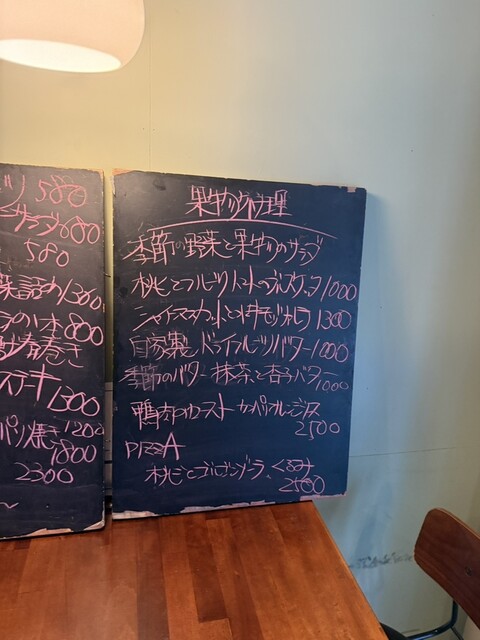 ツ 580
サラダ 680
580
詰め 1300
本 800
春巻き
ステーキ
1300
焼き 1200
1800
2300
〜
果物料理
季節の野菜と果物のサラダ
桃とフルーツトマトのブルスケッタ 1000
シャインマスカットと モッツァレラ 1300
自家製 ドライフルーツバター 1000
季節のバター 抹茶と杏子バター
1000
鴨肉のロースト カンパリオレンジソース
2500
PIZZA
桃とゴルゴンゾーラ くるみ
2500